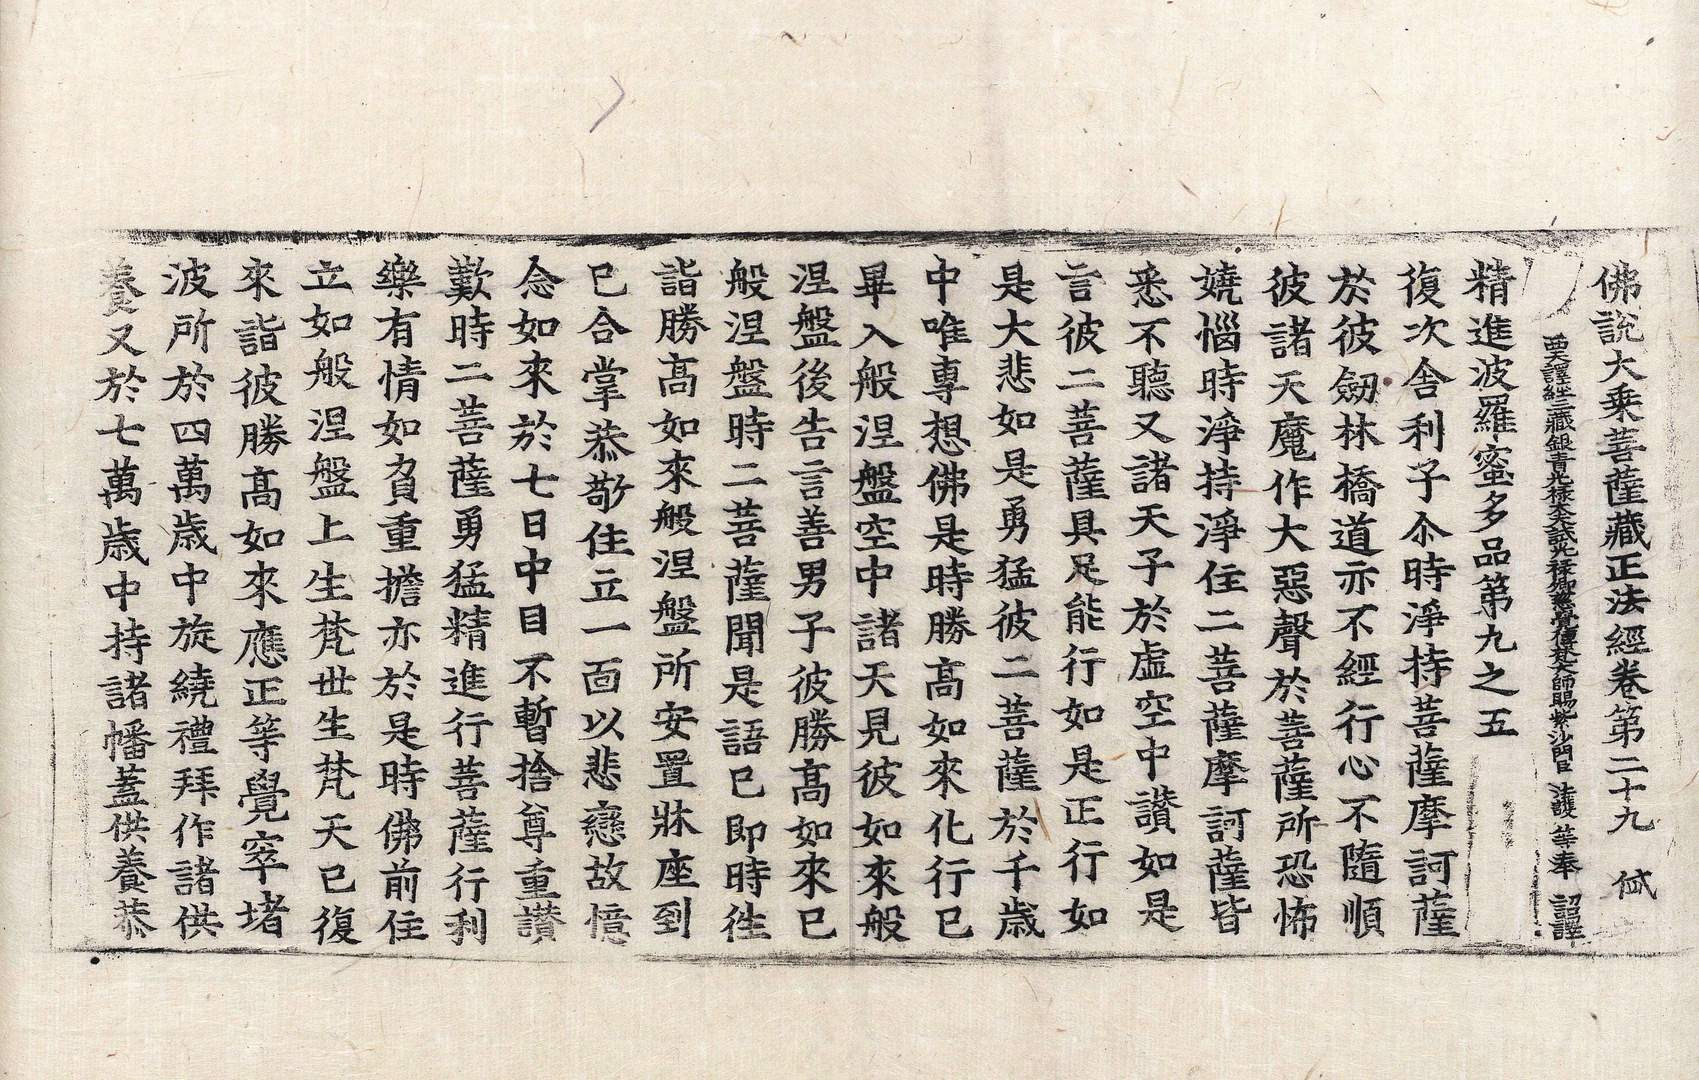 佛說大乗菩薩藏正法經卷第二十九　弑
西天譯經三藏銀青光祿大夫試光祿卿慈覺傳梵大師賜紫沙門臣　法護　等奉　詔譯
精進波羅蜜多品第九之五
復次舍利子尒時淨持菩薩摩訶薩
於彼劒林橋道亦不經行心不隨順
彼諸天魔作大惡聲於菩薩所恐怖
嬈惱時淨持淨住二菩薩摩訶薩皆
悉不聽又諸天子於虛空中讃如是
言彼二菩薩具足能行如是正行如
是大悲如是勇猛彼二菩薩於千歲
中唯專想佛是時勝髙如來化行已
畢入般涅盤空中諸天見彼如來般
涅盤後告言善男子彼勝髙如來已
般涅盤時二菩薩聞是語已即時徃
詣勝髙如來般涅盤所安置牀座到
已合掌恭敬住立一面以悲戀故憶
念如來於七日中目不暫捨尊重讃
歎時二菩薩勇猛精進行菩薩行利
樂有情如負重擔亦於是時佛前住
立如般涅盤上生梵世生梵天已復
來詣彼勝髙如來應正等覺窣堵
波所於四萬歲中旋繞禮拜作諸供
養又於七萬歲中持諸幡蓋供養恭